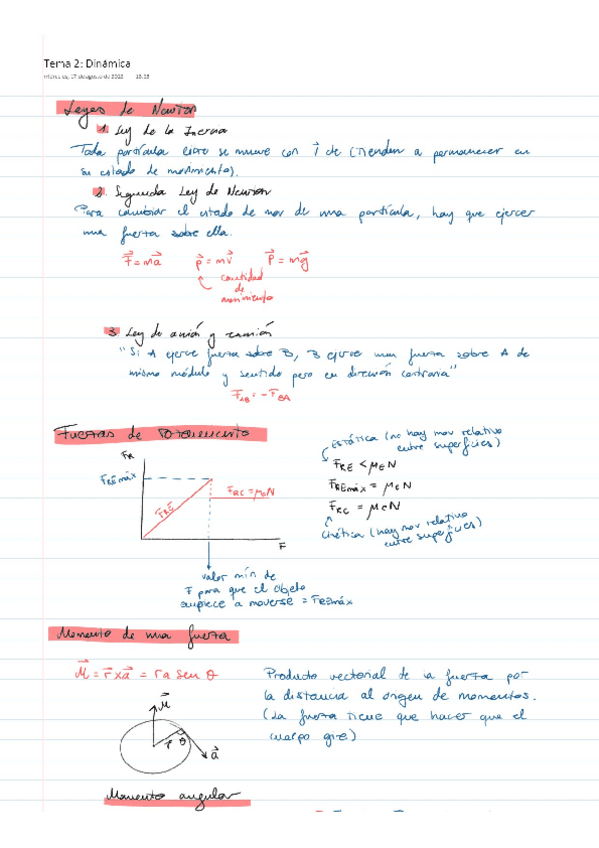 Tema 2: Dinámica
miércoles, 17 de agosto de 2022
Leyes de Newton
1. Ley de la Inercia
Toda partícula libre se mueve con v⃗ cte (tienden a permanecer en
su estado de movimiento).
2. Segunda Ley de Newton
Para cambiar el estado de mov de una partícula, hay que ejercer
una fuerza sobre ella.
F⃗ = ma⃗ p⃗ = mv⃗ P⃗ = mg⃗
cantidad
de
movimiento
3. Ley de acción y reacción
"Si A ejerce fuerza sobre B, B ejerce una fuerza sobre A de
mismo módulo y sentido pero en dirección contraria"
F_AB = -F_BA
Fuerzas de rozamiento
Estática (no hay mov relativo
entre superficies)
F_R
F_REmáx
F_RE
F_RC = μcN
F
F_RE < μeN
F_REmáx = μeN
F_RC = μcN
Cinética (hay mov relativo
entre superfícies)
valor mín de
F para que el objeto
empiece a moverse = F_REmáx
Momento de una fuerza
M⃗ = r⃗ x a⃗ = r a sen θ
Producto vectorial de la fuerza por
la distancia al origen de momentos.
(La fuerza tiene que hacer que el
cuerpo gire)
M⃗
r θ
a⃗
Momento angular